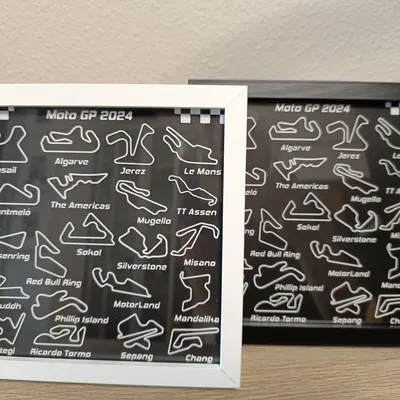 Moto GP 2024
Algarve
Jerez
Le Mans
The Americas
Mugello
TT Assen
Sokol
Silverstone
Misano
Red Bull Ring
MotorLand
Mandalika
Phillip Island
Ricardo Tormo
Sepang
Chang
Moto GP 2024
Algarve
Jerez
Le Mans
The Americas
Mugello
TT Assen
Sokol
Silverstone
Misano
Red Bull Ring
MotorLand
Mandalika
Phillip Island
Ricardo Tormo
Sepang
Chang